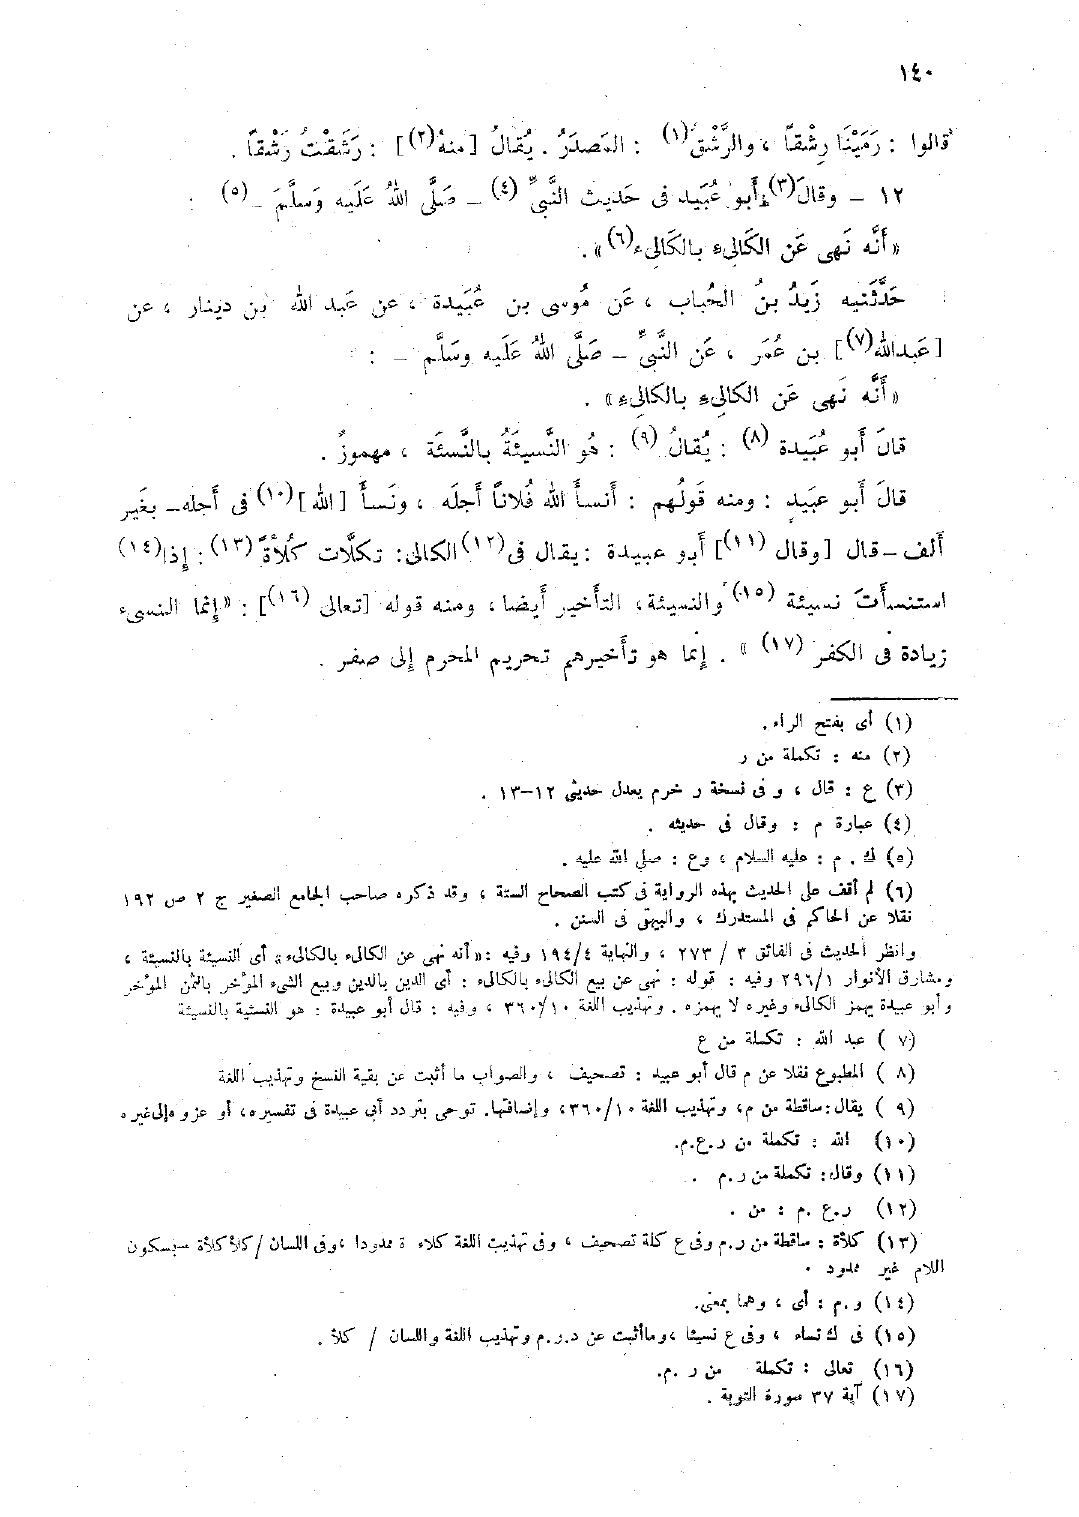 ١٤٠
قالوا : رَمَيْنَا رِشْقاً ، والرَّشْقُ(١) : المَصدَرُ . يُقالُ [منهُ(٢)] : رَشَقْتُ رَشْقاً .
١٢ – وقالَ(٣) أَبو عُبَيد فى حَديث النَّبىِّ(٤) – صَلَّى اللهُ عَلَيه وَسَلَّمَ –(٥) :
«أَنَّه نَهى عَن الكَالىء بالكَالىء(٦)» .
حَدَّثَنيه زَيدُ بنُ الحُباب ، عَن مُوسى بن عُبَيدة ، عن عبد الله بن دينار ، عن
[عبدالله(٧)] بن عُمَر ، عَن النَّبىِّ – صَلَّى اللهُ عَلَيه وسَلَّم – :
«أَنَّه نَهى عَن الكالىءِ بالكالىءِ» .
قالَ أَبو عُبَيدة (٨) : يُقالُ (٩) : هُو النَّسيئَةُ بالنَّسئَة ، مهموزٌ .
قالَ أَبو عبَيدٍ : ومنه قَولُهم : أَنسأَ الله فُلاناً أَجلَه ، ونَسأَ [الله](١٠) فى أجله– بغَير
أَلف – قال [وقال (١١)] أَبو عبيدة : يقال فى(١٢)الكالى: تكلَّات كُلأةً (١٣) : إذا(١٤)
استنسأَتَ نسيئة (١٥) والنسيئة، التأخير أَيضا، ومنه قوله [تعالى (١٦)] : «إنما النسىء
زيادة فى الكفر (١٧) » . إنما هو تأخيرهم تحريم المحرم إلى صفر .
(١) أى بفتح الراء.
(٢) منه : تكملة من ر
(٣) ع : قال ، وفى نسخة ر خرم يعدل حديثى ١٢–١٣ .
(٤) عبارة م : وقال فى حديثه .
(٥) ك . م : عليه السلام ، وع : صلى الله عليه .
(٦) لم أقف على الحديث بهذه الرواية فى كتب الصحاح الستة ، وقد ذكره صاحب الجامع الصغير ج ٢ ص ١٩٢
نقلا عن الحاكم فى المستدرك ، والبيهقى فى السنن .
وانظر الحديث فى الفائق ٣ / ٢٧٣ ، والنهاية ١٩٤/٤ وفيه : «أنه نهى عن الكالىء بالكالىء» أى النسيئة بالنسيئة ،
ومشارق الأنوار ٢٩٦/١ وفيه : قوله : نهى عن بيع الكالىء بالكالىء : أى الدين بالدين وبيع الشىء المؤخر بالثمن المؤخر
وأبو عبيدة يهمز الكالىء وغيره لا يهمزه . وتهذيب اللغة ٣٦٠/١٠ ، وفيه : قال أبو عبيدة : هو النسئية بالنسيئة
(٧ ) عبد الله : تكملة من ع
(٨ ) المطبوع نقلا عن م قال أبو عبيد : تصحيف ، والصواب ما أثبت عن بقية النسخ وتهذيب اللغة
(٩ ) يقال : ساقطة من م، وتهذيب اللغة ٣٦٠/١٠، وإضافتها. توحى بتردد أبى عبيدة فى تفسيره، أو عزوه إلى غيره
(١٠) الله : تكملة من ر.ع.م.
(١١) وقال: تكملة من ر.م .
(١٢) ر.ع .م : من .
(١٣) كلأة : ساقطة من ر.م وفى ع كلة تصحيف ، وفى تهذيب اللغة كلاء ة ممدودا ،وفى اللسان /كلأكلأة –بسكون
اللام غير ممدود .
(١٤) و.م : أى ، وهما بمعنى.
(١٥) فى ك نساء ، وفى ع نسيئا ،وماأثبت عن د.ر.م وتهذيب اللغة واللسان / كلأ .
(١٦) تعالى : تكملة من ر .م.
(١٧) آية ٣٧ سورة التوبة .